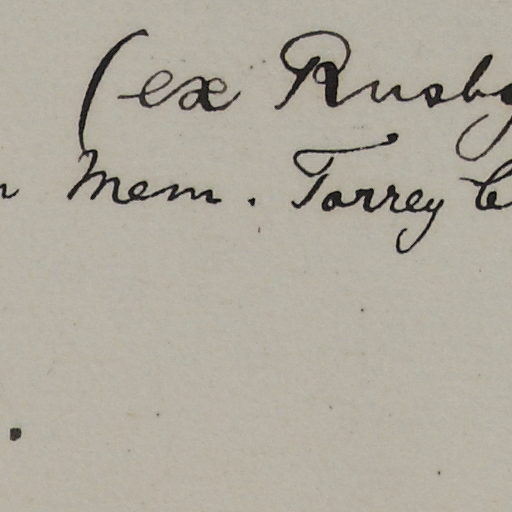 (ex Rusby
Mem. Torrey